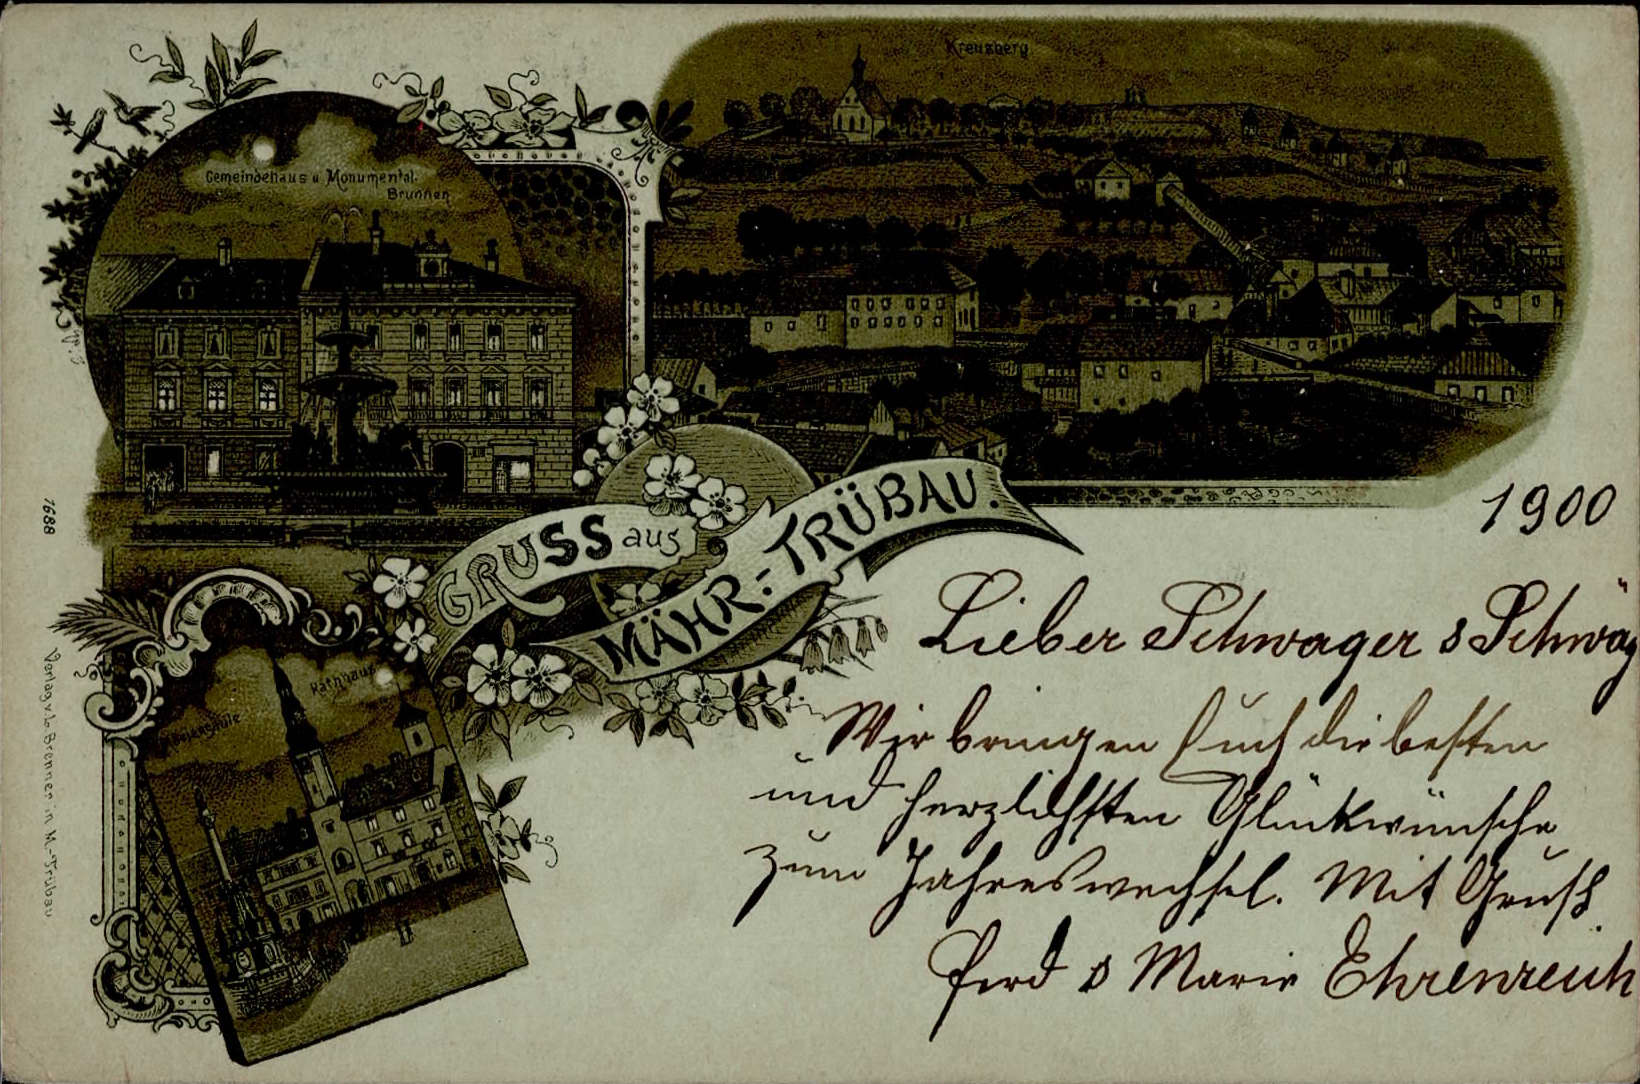 Kreuzberg
Gemeindehaus u Monumental.
Brunnen
GRUSS aus
MÄHR:-TRÜBAU.
Rathhaus
1688
Verlag v. L. Brenner in M.-Trübau
1900
Lieber Schwager & Schwäg
Wir bringen Euch die besten
und herzlichsten Glückwünsche
zum Jahreswechsel. Mit Gruß
Ferd & Marie Ehrenreich